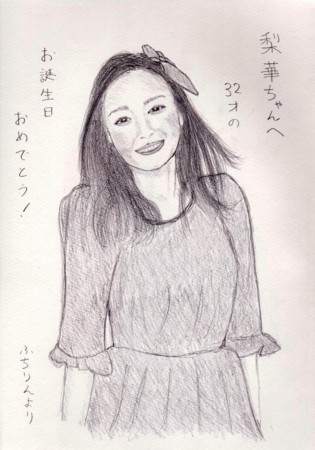 梨華ちゃんへ
32才の
お誕生日
おめでとう!
ふちりんより